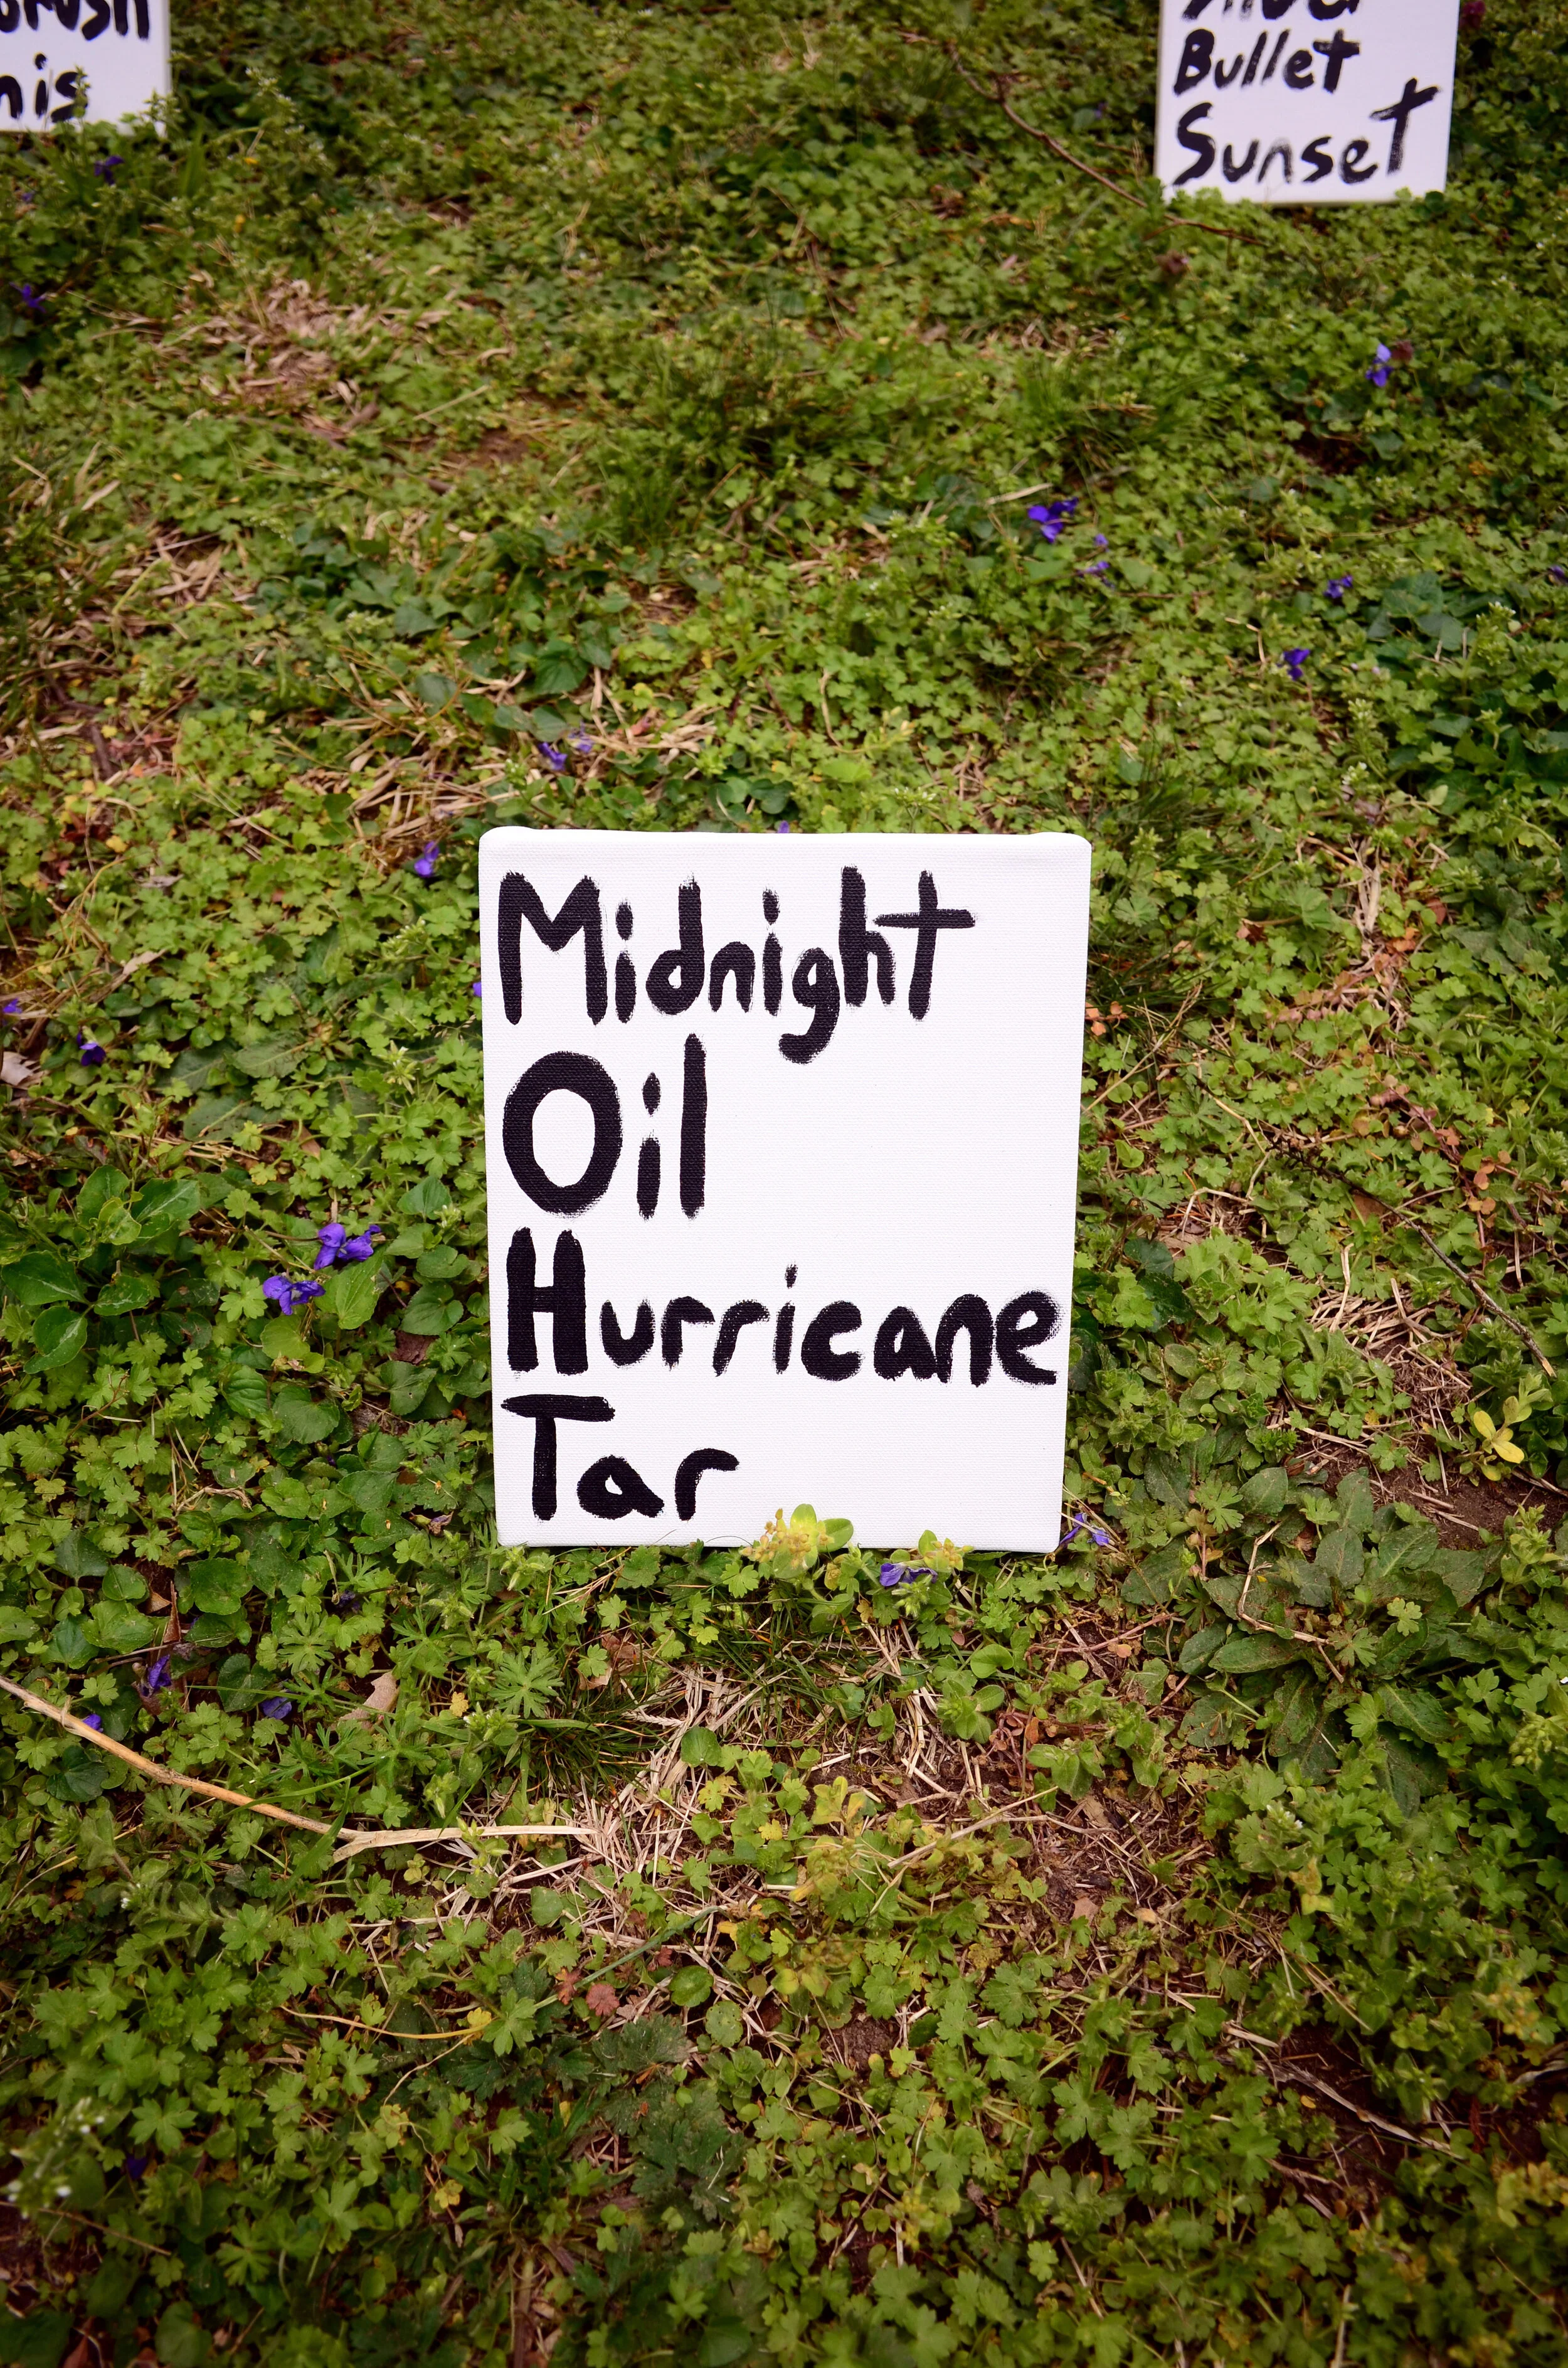 Bullet
Sunset
Midnight
Oil
Hurricane
Tar